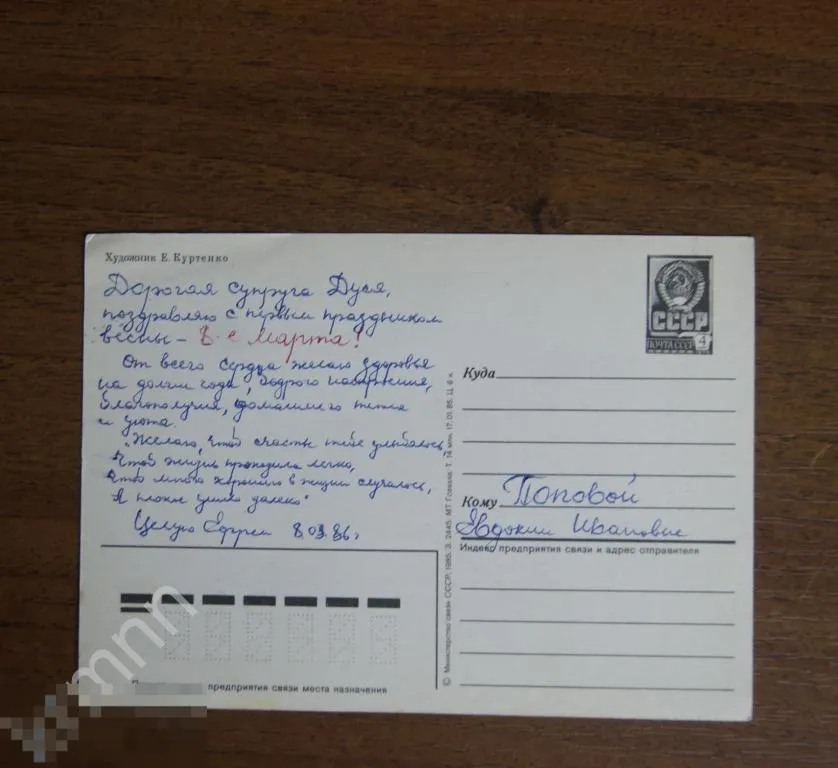 Художник Е. Куртенко
Дорогая супруга Дуся,
поздравляю с первым праздником
весны – 8-е Марта!
От всего сердца желаю здоровья
на долгие года, бодрого настроения,
благополучия, домашнего тепла
и уюта.
"Желаю, чтоб счастье тебе улыбалось,
Чтоб жизнь проходила легко,
Что много хорошего в жизни случалось,
А плохое ушло далеко"
Целую Ефрем 8.03.86 г
СССР
ПОЧТА СССР 4
Куда
Кому Поповой
Явдокии Ивановне
Индекс предприятия связи и адрес отправителя
© Министерство связи СССР, 1985. З. 2445. МТ Гознака. Т. 14 млн. 17.01.85. Ц. 6 к.
предприятия связи места назначения
mnn